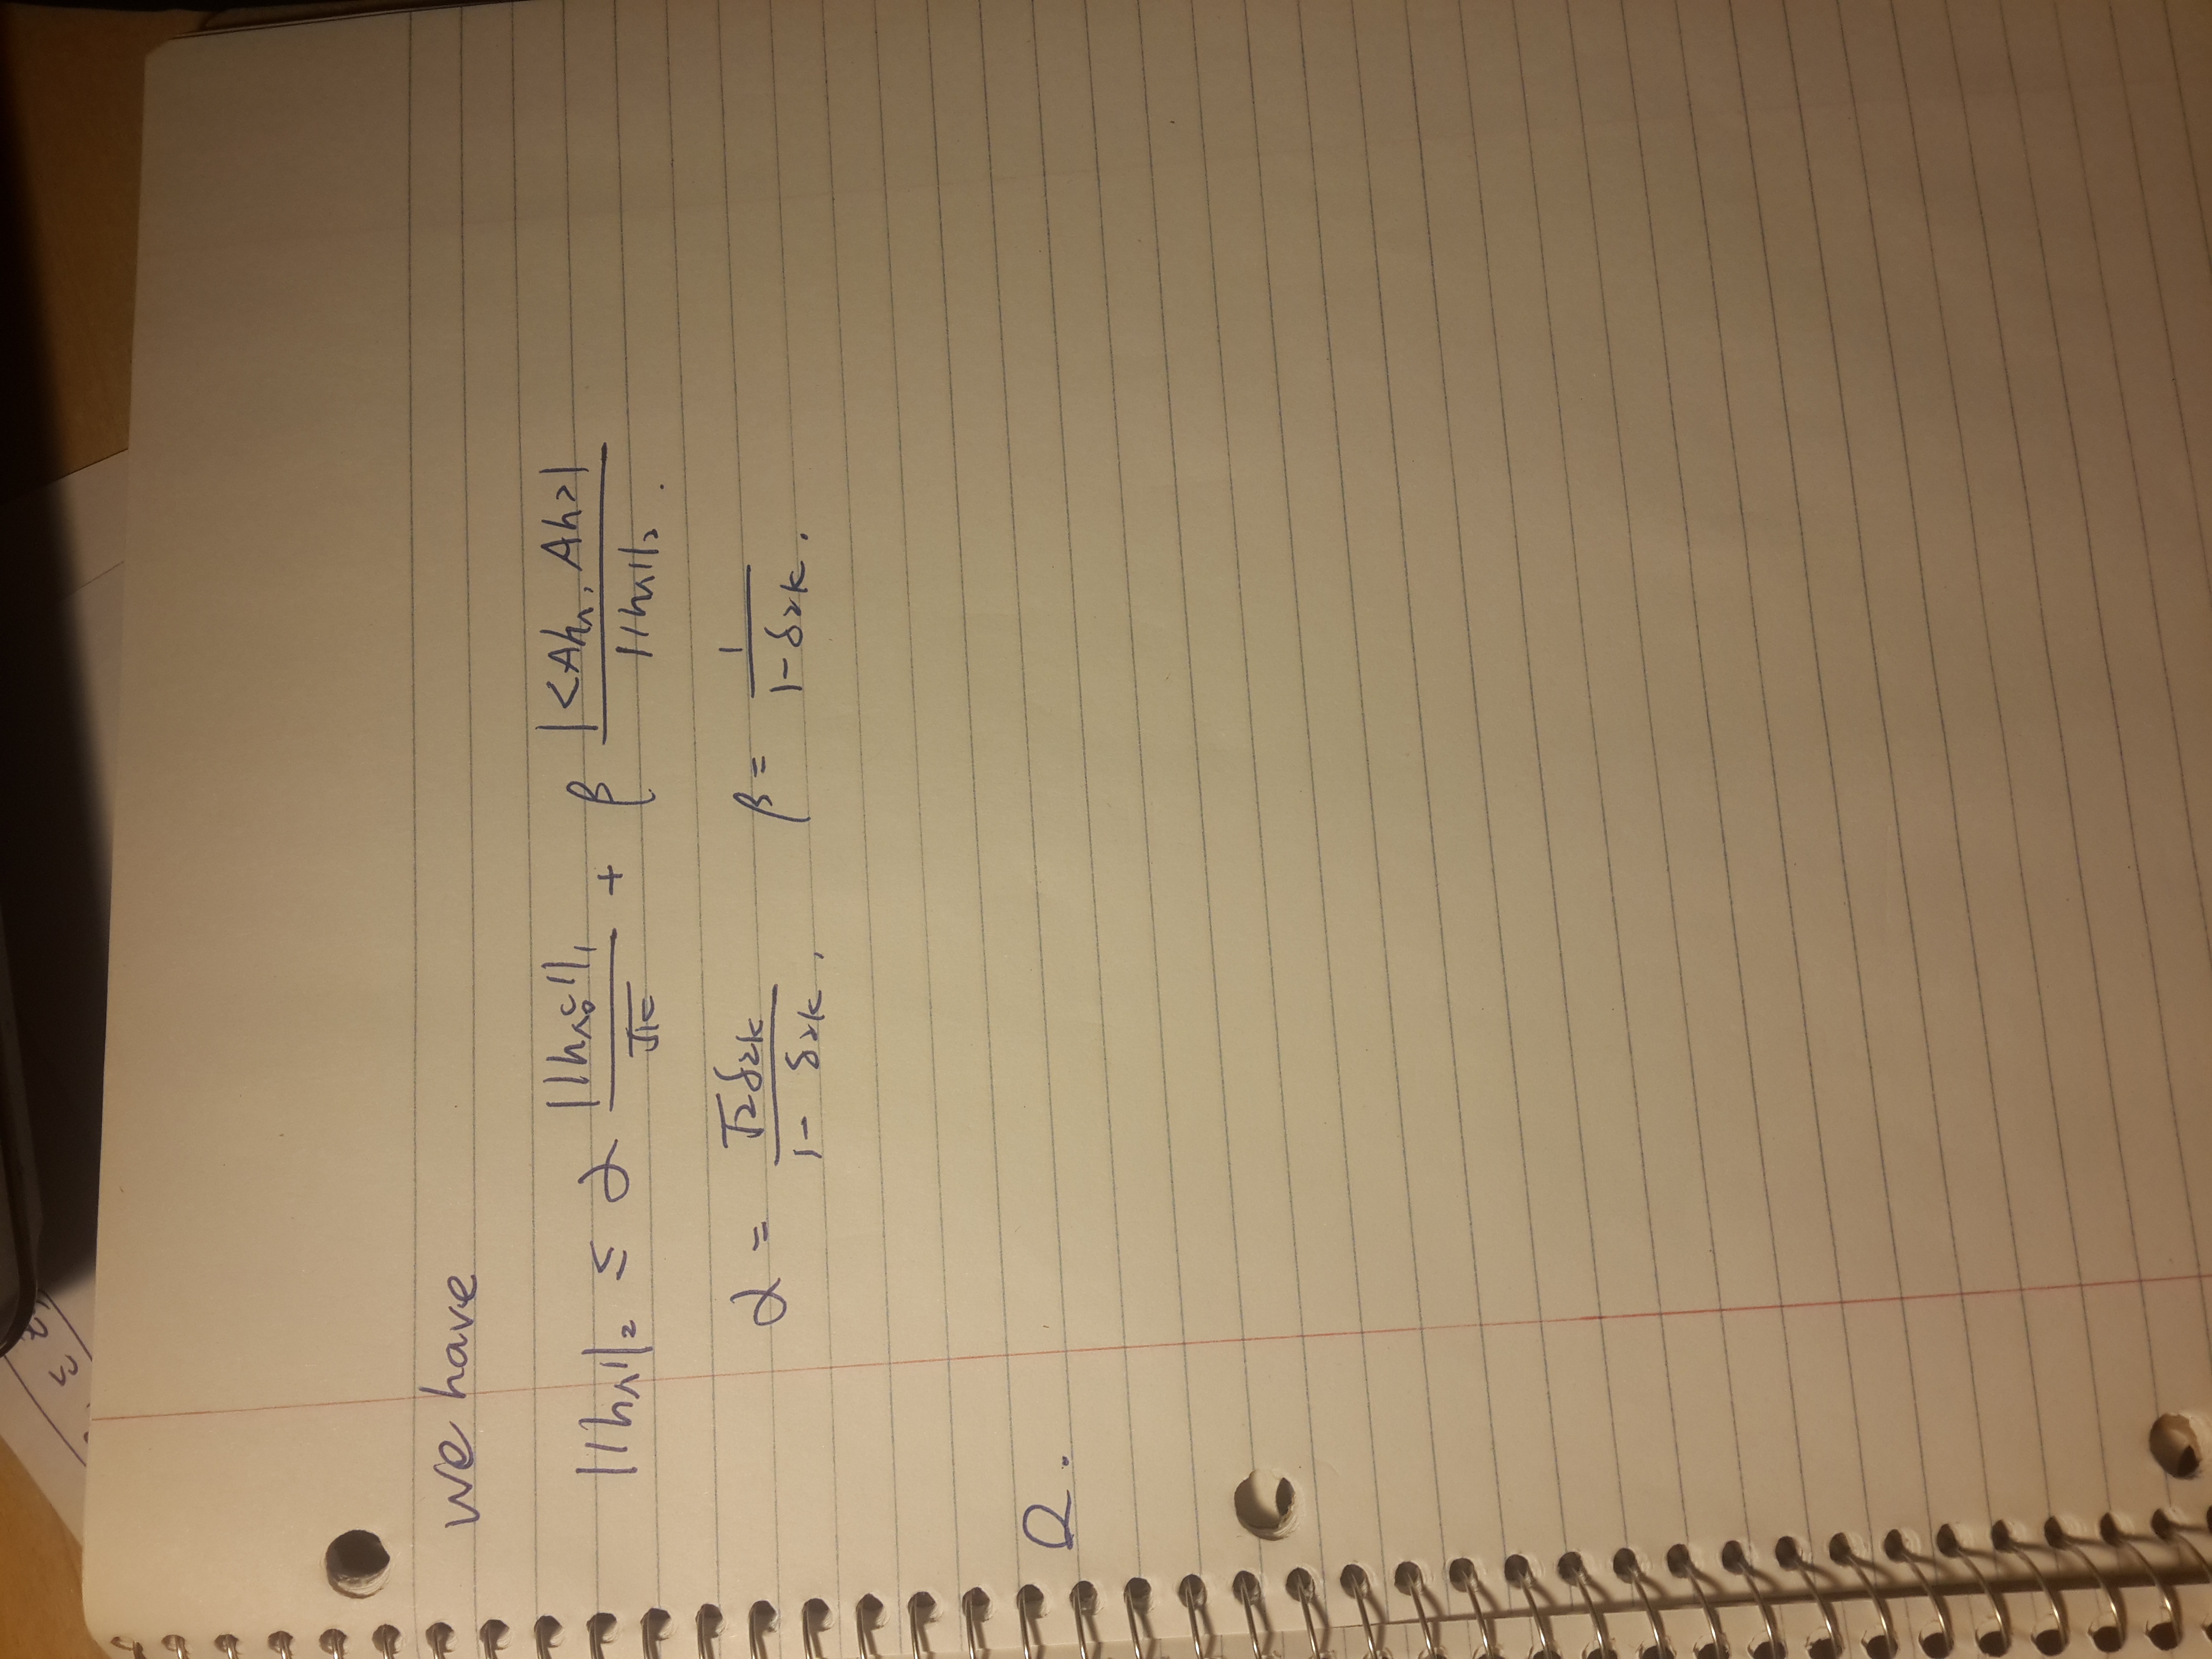 we have
||h_Λ||_2 ≤ α ||h_{Λ_0^c}||_1 / √k + β |<Ah_Λ, Ah>| / ||h_Λ||_2 .
α = √2 δ_{2k} / (1 - δ_{2k}) , β = 1 / (1 - δ_{2k}) .
Q .